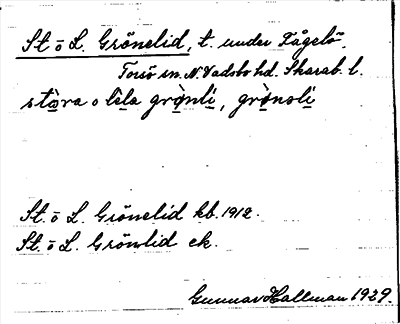 St. o L. Grönelid, t. under Fågelö,
Torsö sn. N. Vadsbo hd. Skarab. l.
stọ̀ra o lìla grọ̀nli, grọ̀nsli
St. o L. Grönelid kb. 1912.
St. o L. Grönlid ek.
Gunnar Hallman 1929